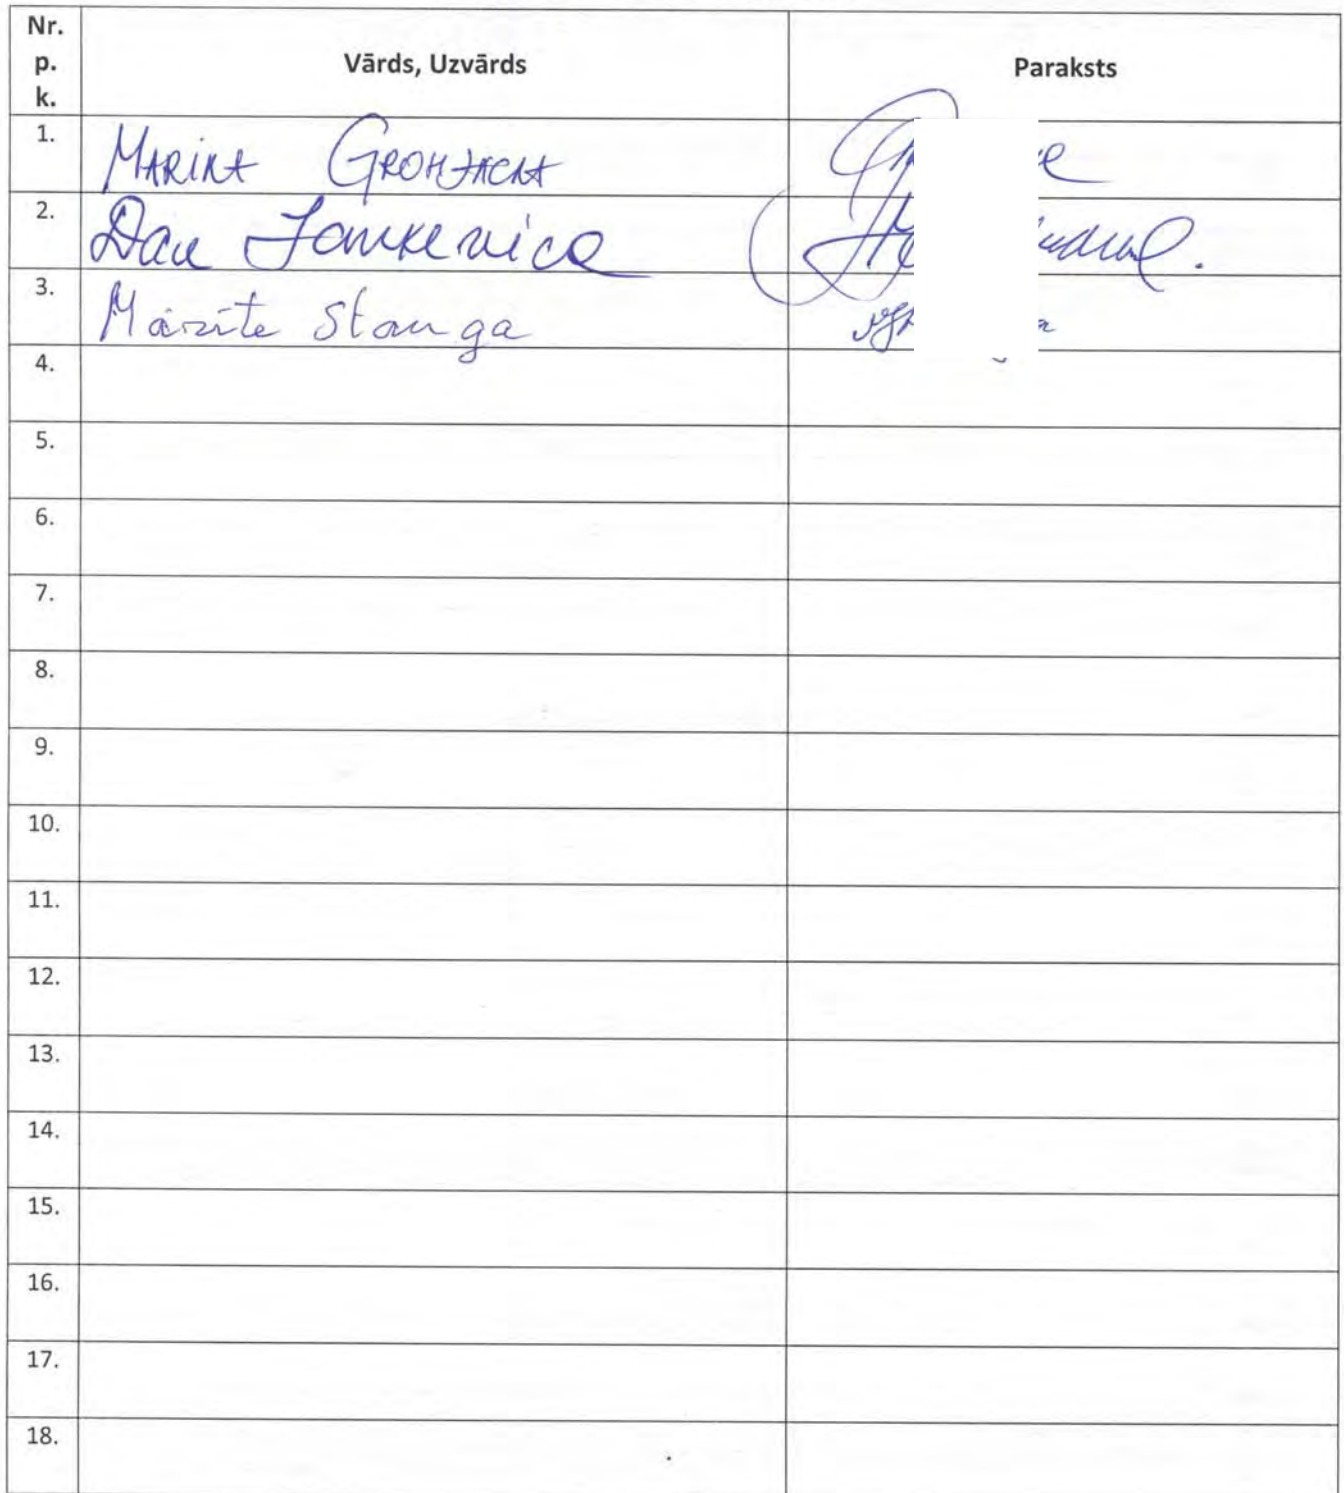 Nr. p. k. Vārds, Uzvārds Paraksts
1. MARINA
2. Jankevica
3. Mārīte Stanga
4.
5.
6.
7.
8.
9.
10.
11.
12.
13.
14.
15.
16.
17.
18.